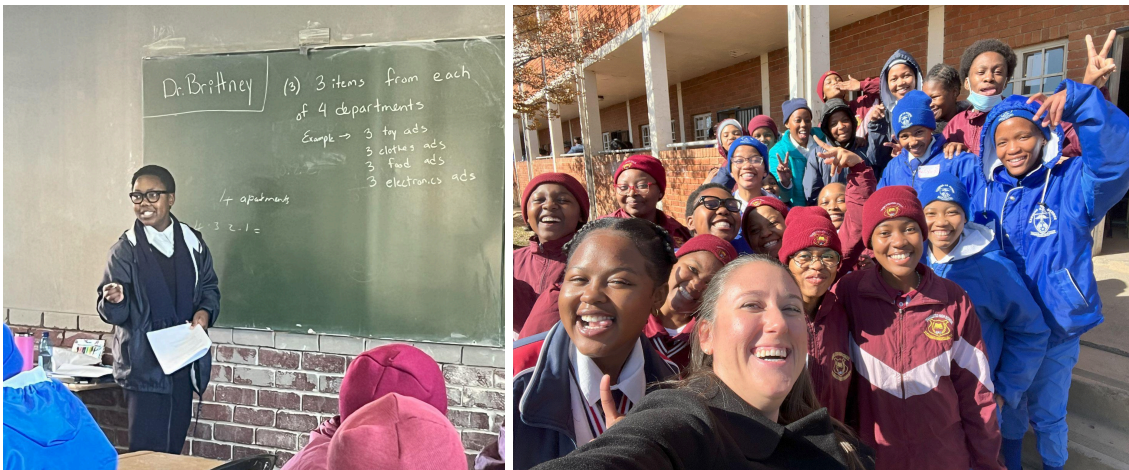 Dr. Brittney
(3) 3 items from each
of 4 departments
Example → 3 toy ads
3 clothes ads
3 food ads
3 electronics ads
4 apartments
4 · 3 · 2 · 1 =